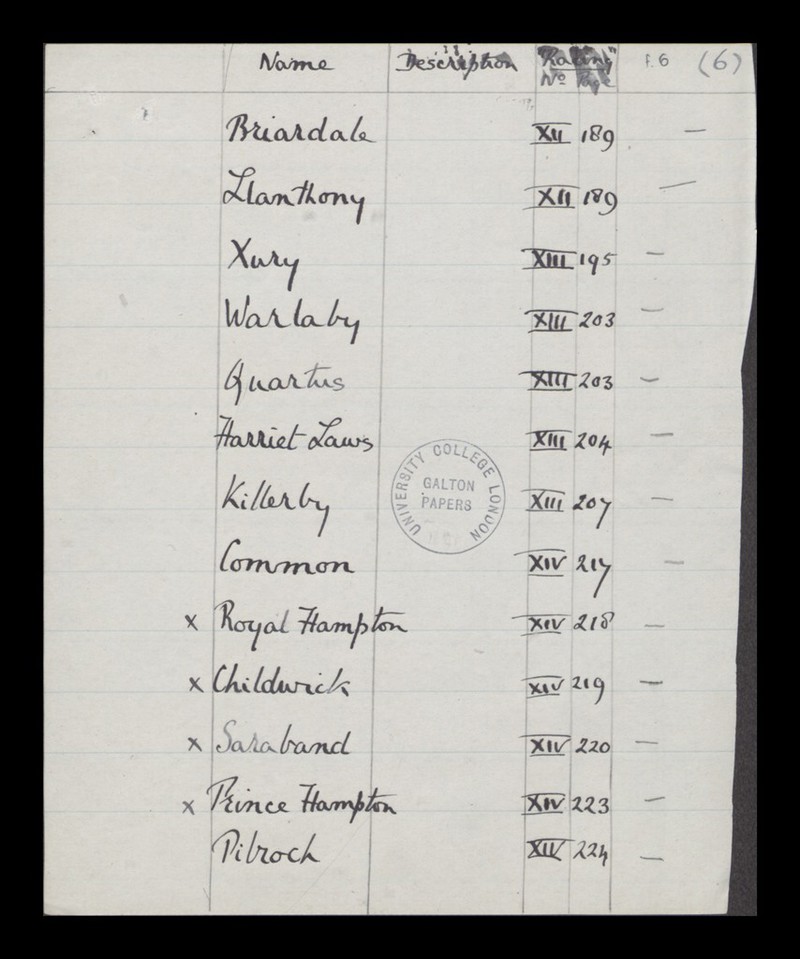 Name Description "Rating" f. 6 (6)
No Page
Briardale XII 189 —
Llanthony XII 189 —
Xury XIII 195 —
Warlaby XIII 203 —
Quartus XIII 203 —
Harriet Laws XIII 204 —
Killerby XIII 207 —
Common XIV 217 —
x Royal Hampton XIV 218 —
x Childwick XIV 219 —
x Saraband XIV 220 —
x Prince Hampton XIV 223 —
Pibroch XIV 224 —
UNIVERSITY COLLEGE LONDON
GALTON
PAPERS